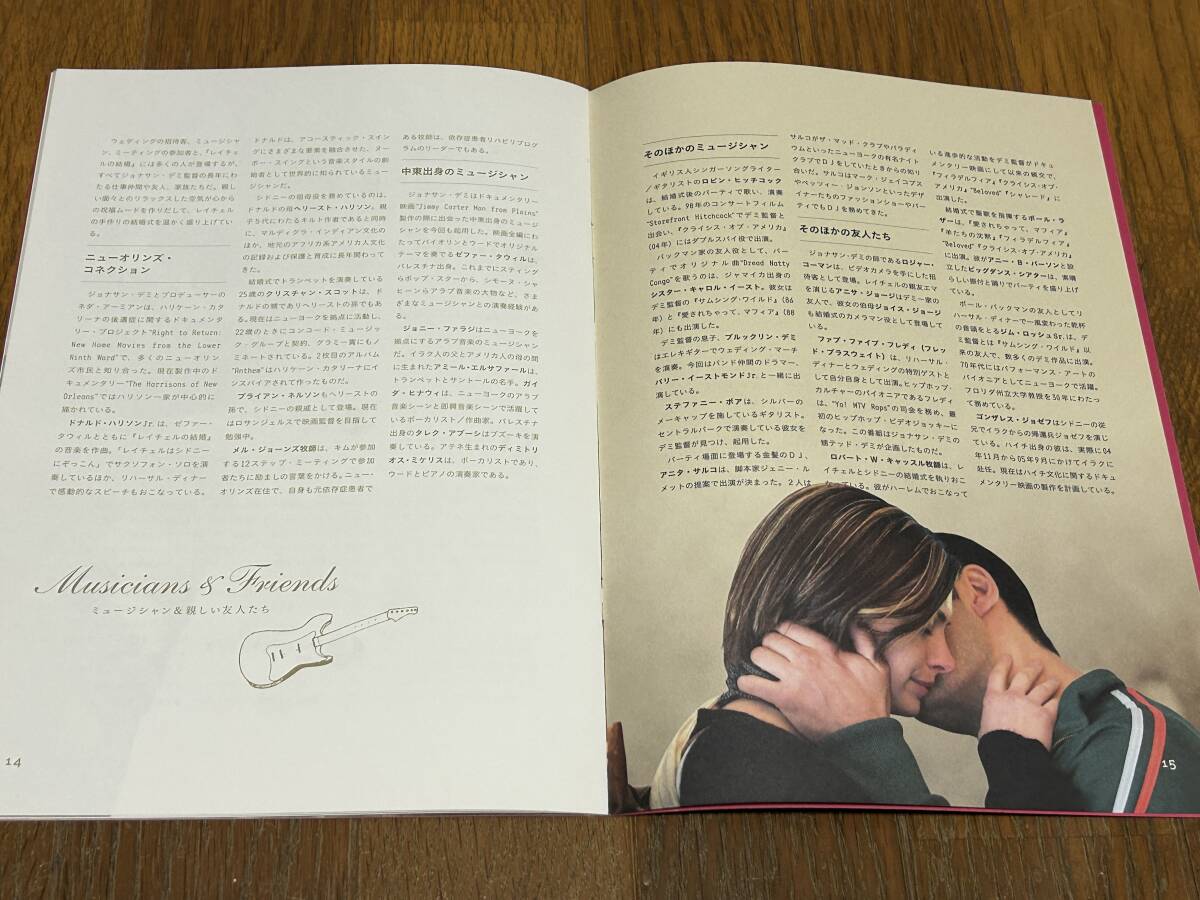 ウェディングの招待客、ミュージシャ
ン、ミーティングの参加者と、『レイチェ
ルの結婚』には多くの人が登場するが、
すべてジョナサン・デミ監督の長年にわ
たる仕事仲間や友人、家族たちだ。親し
い面々とのリラックスした空気が心から
の祝福ムードを作りだして、レイチェル
の手作りの結婚式を温かく盛り上げてい
る。
ニューオリンズ・
コネクション
ジョナサン・デミとプロデューサーの
ネダ・アーミアンは、ハリケーン・カタ
リーナの後遺症に関するドキュメンタ
リー・プロジェクト"Right to Return:
New Home Movies from the Lower
Ninth Ward"で、多くのニューオリン
ズ市民と知り合った。現在製作中のド
キュメンタリー"The Harrisons of New
Orleans"ではハリソン一家が中心的に
描かれている。
ドナルド・ハリソンJr.は、ゼファー・
タウィルとともに『レイチェルの結婚』
の音楽を作曲。「レイチェルはシドニー
にぞっこん」でサクソフォン・ソロを演
奏しているほか、リハーサル・ディナー
で感動的なスピーチもおこなっている。
ドナルドは、アコースティック・スイン
グにさまざまな要素を融合させた、ヌー
ボー・スウィングという音楽スタイルの創
始者として世界的に知られているミュー
ジシャンだ。
シドニーの祖母役を務めているのは、
ドナルドの母ヘリースト・ハリソン。親
子5代にわたるキルト作者であると同時
に、マルディグラ・インディアン文化の
ほか、地元のアフリカ系アメリカ人文化
の記録および保護と育成に長年関わって
きた。
結婚式でトランペットを演奏している
25歳のクリスチャン・スコットは、ド
ナルドの甥でありヘリーストの孫でもあ
る。現在はニューヨークを拠点に活動し、
22歳のときにコンコード・ミュージッ
ク・グループと契約、グラミー賞にもノ
ミネートされている。2枚目のアルバム
"Anthem"はハリケーン・カタリーナにイ
ンスパイアされて作ったものだ。
ブライアン・ネルソンもヘリーストの
孫で、シドニーの親戚として登場。現在
はロサンジェルスで映画監督を目指して
勉強中。
メル・ジョーンズ牧師は、キムが参加
する12ステップ・ミーティングで参加
者たちに励ましの言葉をかける。ニュー・
オリンズ在住で、自身も元依存症患者で
ある牧師は、依存症患者リハビリプログ
ラムのリーダーでもある。
中東出身のミュージシャン
ジョナサン・デミはドキュメンタリー
映画"Jimmy Carter Man from Plains"
製作の際に出会った中東出身のミュージ
シャンを今回も起用した。映画全編にわ
たってバイオリンとウードでオリジナル
テーマを奏でるゼファー・タウィルは、
パレスチナ出身。これまでにスティング
らポップ・スターから、シモーヌ・シャ
ヒーンらアラブ音楽の大物など、さま
ざまなミュージシャンとの演奏経験があ
る。
ジョニー・ファラジはニューヨークを
拠点にするアラブ音楽のミュージシャン
だ。イラク人の父とアメリカ人の母の間
に生まれたアミール・エルサファールは、
トランペットとサントールの名手。ガイ
ダ・ヒナウィは、ニューヨークのアラブ
音楽シーンと即興音楽シーンで活躍して
いるボーカリスト／作曲家。パレスチナ
出身のタレク・アブーシはブズーキを演
奏している。アテネ生まれのディミトリ
オス・ミケリスは、ボーカリストであり、
ウードとピアノの演奏家である。
Musicians & Friends
ミュージシャン＆親しい友人たち
14
そのほかのミュージシャン
イギリス人シンガーソングライター
／ギタリストのロビン・ヒッチコック
は、結婚式後のパーティで歌い、演奏
している。98年のコンサートフィルム
"Storefront Hitchcock"でデミ監督と
出会い、『クライシス・オブ・アメリカ』
(04年)にはダブルスパイ役で出演。
バックマン家の友人役として、パー
ティでオリジナル曲"Dread Natty
Congo"を歌うのは、ジャマイカ出身の
シスター・キャロル・イースト。彼女は
デミ監督の『サムシング・ワイルド』(86
年)と『愛されちゃって、マフィア』(88
年)にも出演した。
デミ監督の息子、ブルックリン・デミ
はエレキギターでウェディング・マーチ
を演奏。今回はバンド仲間のドラマー、
バリー・イーストモンドJr.と一緒に出
演している。
ステファニー・ボアは、シルバーの
メーキャップを施しているギタリスト。
セントラルパークで演奏している彼女を
デミ監督が見つけ、起用した。
パーティ場面に登場する金髪のDJ、
アニタ・サルコは、脚本家ジェニー・ル
メットの提案で出演が決まった。2人は
サルコがザ・マッド・クラブやパラディ
ウムといったニューヨークの有名ナイト
クラブでDJをしていたときからの知り
合いだ。サルコはマーク・ジェイコブス
やベッツィー・ジョンソンといったデザ
イナーたちのファッションショーやパー
ティでもDJを務めてきた。
そのほかの友人たち
ジョナサン・デミの師であるロジャー・
コーマンは、ビデオカメラを手にした招
待客として登場。レイチェルの親友エマ
を演じるアニサ・ジョージはデミ一家の
友人で、彼女の伯母ジョイス・ジョージ
も結婚式のカメラマン役として登場して
いる。
ファブ・ファイブ・フレディ(フレッ
ド・ブラスウェイト)は、リハーサル・
ディナーとウェディングの特別ゲストと
して自分自身として出演。ヒップホップ・
カルチャーのパイオニアであるフレディ
は、"Yo! MTV Raps"の司会を務め、最
初のヒップホップ・ビデオジョッキーに
なった。この番組はジョナサン・デミの
甥テッド・デミが企画したものだ。
ロバート・W・キャッスル牧師は、レ
イチェルとシドニーの結婚式を執りおこ
なっている。彼がハーレムでおこなって
いる進歩的な活動をデミ監督がドキュ
メンタリー映画にして以来の親交で、
『フィラデルフィア』『クライシス・オブ・
アメリカ』"Beloved"『シャレード』に
出演した。
結婚式で聖歌を指揮するポール・ラ
ザーは、『愛されちゃって、マフィア』
『羊たちの沈黙』『フィラデルフィア』
"Beloved"『クライシス・オブ・アメリカ』
に出演。彼がアニー・B・パーソンと設
立したビッグダンス・シアターは、素晴
らしい振付と踊りでパーティを盛り上げ
ている。
ポール・バックマンの友人としてリ
ハーサル・ディナーで一風変わった乾杯
の音頭をとるジム・ロッシュSr.は、デ
ミ監督とは『サムシング・ワイルド』以
来の友人で、数多くのデミ作品に出演。
70年代にはパフォーマンス・アートの
パイオニアとしてニューヨークで活躍。
フロリダ州立大学教授を30年にわたっ
て務めている。
ゴンザレス・ジョゼフはシドニーの従
兄でイラクからの帰還兵ジョゼフを演じ
ている。ハイチ出身の彼は、実際に04
年11月から05年9月にかけてイラクに
赴任。現在はハイチ文化に関するドキュ
メンタリー映画の製作を計画している。
15